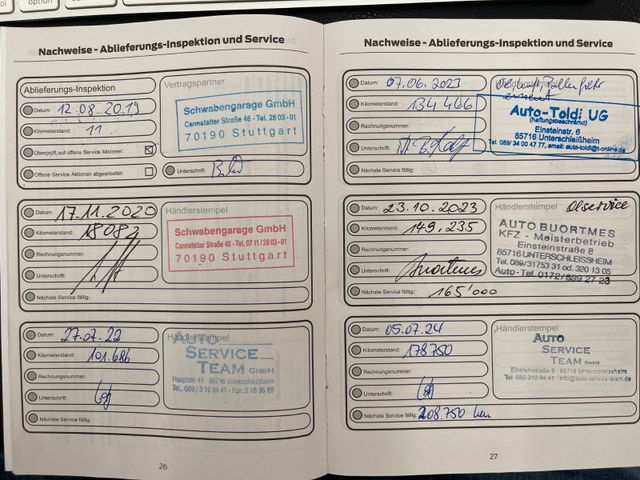 option
Nachweise - Ablieferungs-Inspektion und Service
Ablieferungs-Inspektion
Datum: 12.08.2019
Kilometerstand: 11
Überprüft auf offene Service Aktionen:
Offene Service Aktionen abgearbeitet:
Vertragspartner
Schwabengarage GmbH
Cannstatter Straße 46 - Tel. 28 03-01
70190 Stuttgart
Unterschrift:
Datum: 17.11.2020
Kilometerstand: 18083
Rechnungsnummer:
Unterschrift:
Nächste Service fällig:
Händlerstempel
Schwabengarage GmbH
Cannstatter Straße 46 - Tel. 07 11 / 28 03-01
70190 Stuttgart
Datum: 27.07.22
Kilometerstand: 101.686
Rechnungsnummer:
Unterschrift:
Nächste Service fällig:
Händlerstempel
AUTO
SERVICE
TEAM GMBH
Hauptstr. 41 - 85716 Unterschleissheim
Tel. 089 / 3 10 94 41 - Fax 3 18 36 69
26
Nachweise - Ablieferungs-Inspektion und Service
Datum: 07.06.2023
Kilometerstand: 134 466
Rechnungsnummer:
Unterschrift:
Nächste Service fällig:
Auto-Toldi UG
(haftungsbeschränkt)
Einsteinstr. 6
85716 Unterschleißheim
Tel. 089/ 34 00 47 77, email: auto-toldi@t-online.de
Datum: 23.10.2023
Kilometerstand: 149,235
Rechnungsnummer:
Unterschrift: Buortmes
Nächste Service fällig: 165'000
Händlerstempel Ölservice
AUTO BUORTMES
KFZ - Meisterbetrieb
Einsteinstraße 8
85716 UNTERSCHLEISSHEIM
Tel. 089/31753 31 od. 320 13 05
Auto-Tel. 0172/899 27 23
Datum: 05.07.24
Kilometerstand: 178750
Rechnungsnummer:
Unterschrift:
Nächste Service fällig: 208.750 km
Händlerstempel
AUTO
SERVICE
TEAM GMBH
Einsteinstraße 8 - 85716 Unterschleissheim
Tel: 089 310 94 41 - info@auto-service-team.de
27